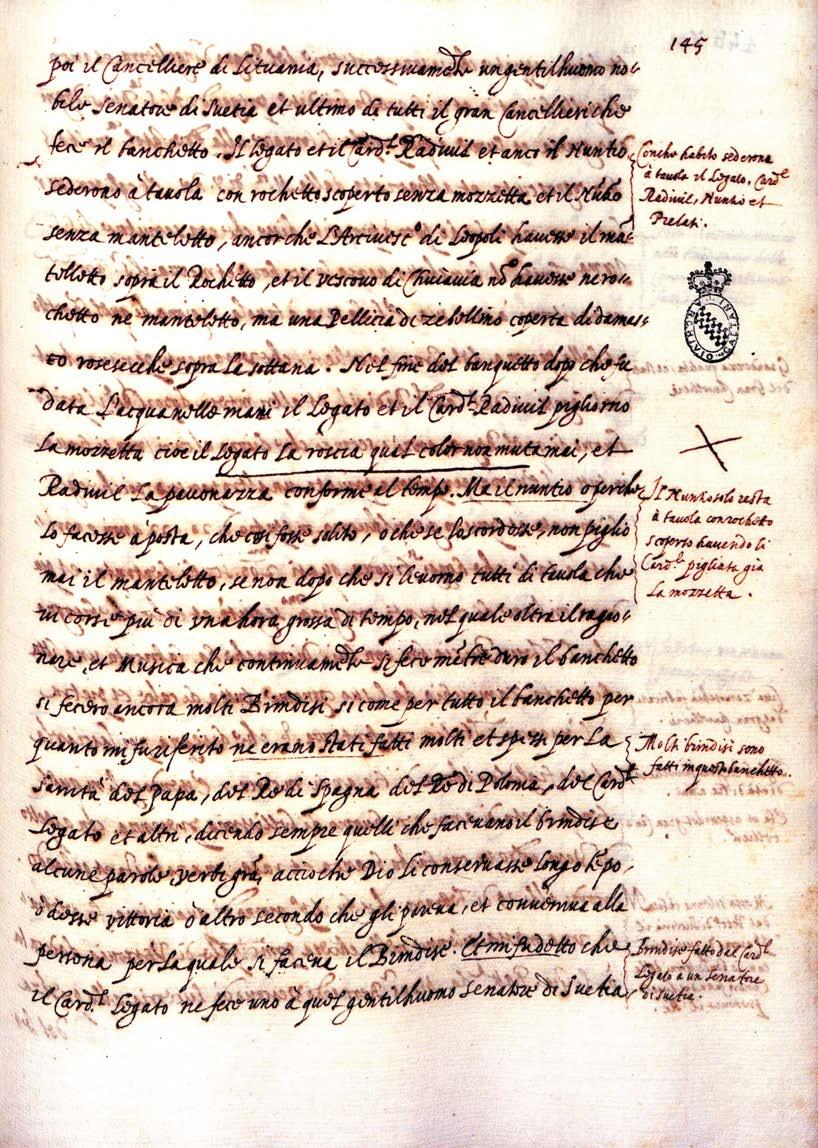 145
poi il Cancelliere di Lituania, successivamte un gentilhuomo no-
bile Senatore di Suetia et ultimo de tutti il gran Cancellieri che
fece il banchetto. Il Legato et il Card.l Radivil et anco il Nuntio
sederono à tavola con rochetto scoperto senza mozzetta et il Nũtio
senza manteletto, ancorche L'Arcivesc.o di Leopoli havesse il mã-
telletto sopra il Rochetto, et il vescovo di Chuiavia nõ havesse ne ro-
chetto ne manteletto, ma una Pelliccia di zebellino coperta di damas-
co rosesecche sopra la sottana. Nel fine del banquetto dopo che fu
data L'acqua nelle mani il Legato et il Card.l Radivil pigliorno
la mozzetta cioè il Legato la roscia qual color non muta mai, et
Radivil la pavonazza conforme al temp. Ma il nuntio o perche
lo facesse à posta, che così fosse solito, o che se lo scordasse, non piglio
mai il manteletto, se non dopo che si levorno tutti di tavola che
vi corse più di una hora grossa di tempo, nel quale oltra il ragio-
nare, et Musica che continuamte si fece mẽtre duro il banchetto
si fecero ancora molti Brindisi si come per tutto il banchetto per
quanto mi fu riferito ne erano stati fatti molti et spessi per la
Santà del Papa, del Re di Spagna del Re di Polonia, del Card.l
Legato et altri, dicendo sempre quelli che facevano il brindise
alcune parole, verbi grã, accioche Dio li conservasse longo tẽpo,
ò desse vittoria ò altro secondo che gli pareva, et conveniva alla
persona per la quale si faceva il Brindise. Et mi fu detto che
il Card.l Legato ne fece uno à quel gentilhuomo senatore di Suetia
Con che habito sederono
à tavola il Legato, Card.le
Radivil, Nuntio et
Prelati.
Il Nuntio solo resta
à tavola con rochetto
scoperto havendo li
Card.li pigliata già
la mozzetta.
Molti brindisi sono
fatti in questo banchetto.
Brindise fatto dal Card.l
Legato à un senatore
di Suetia.